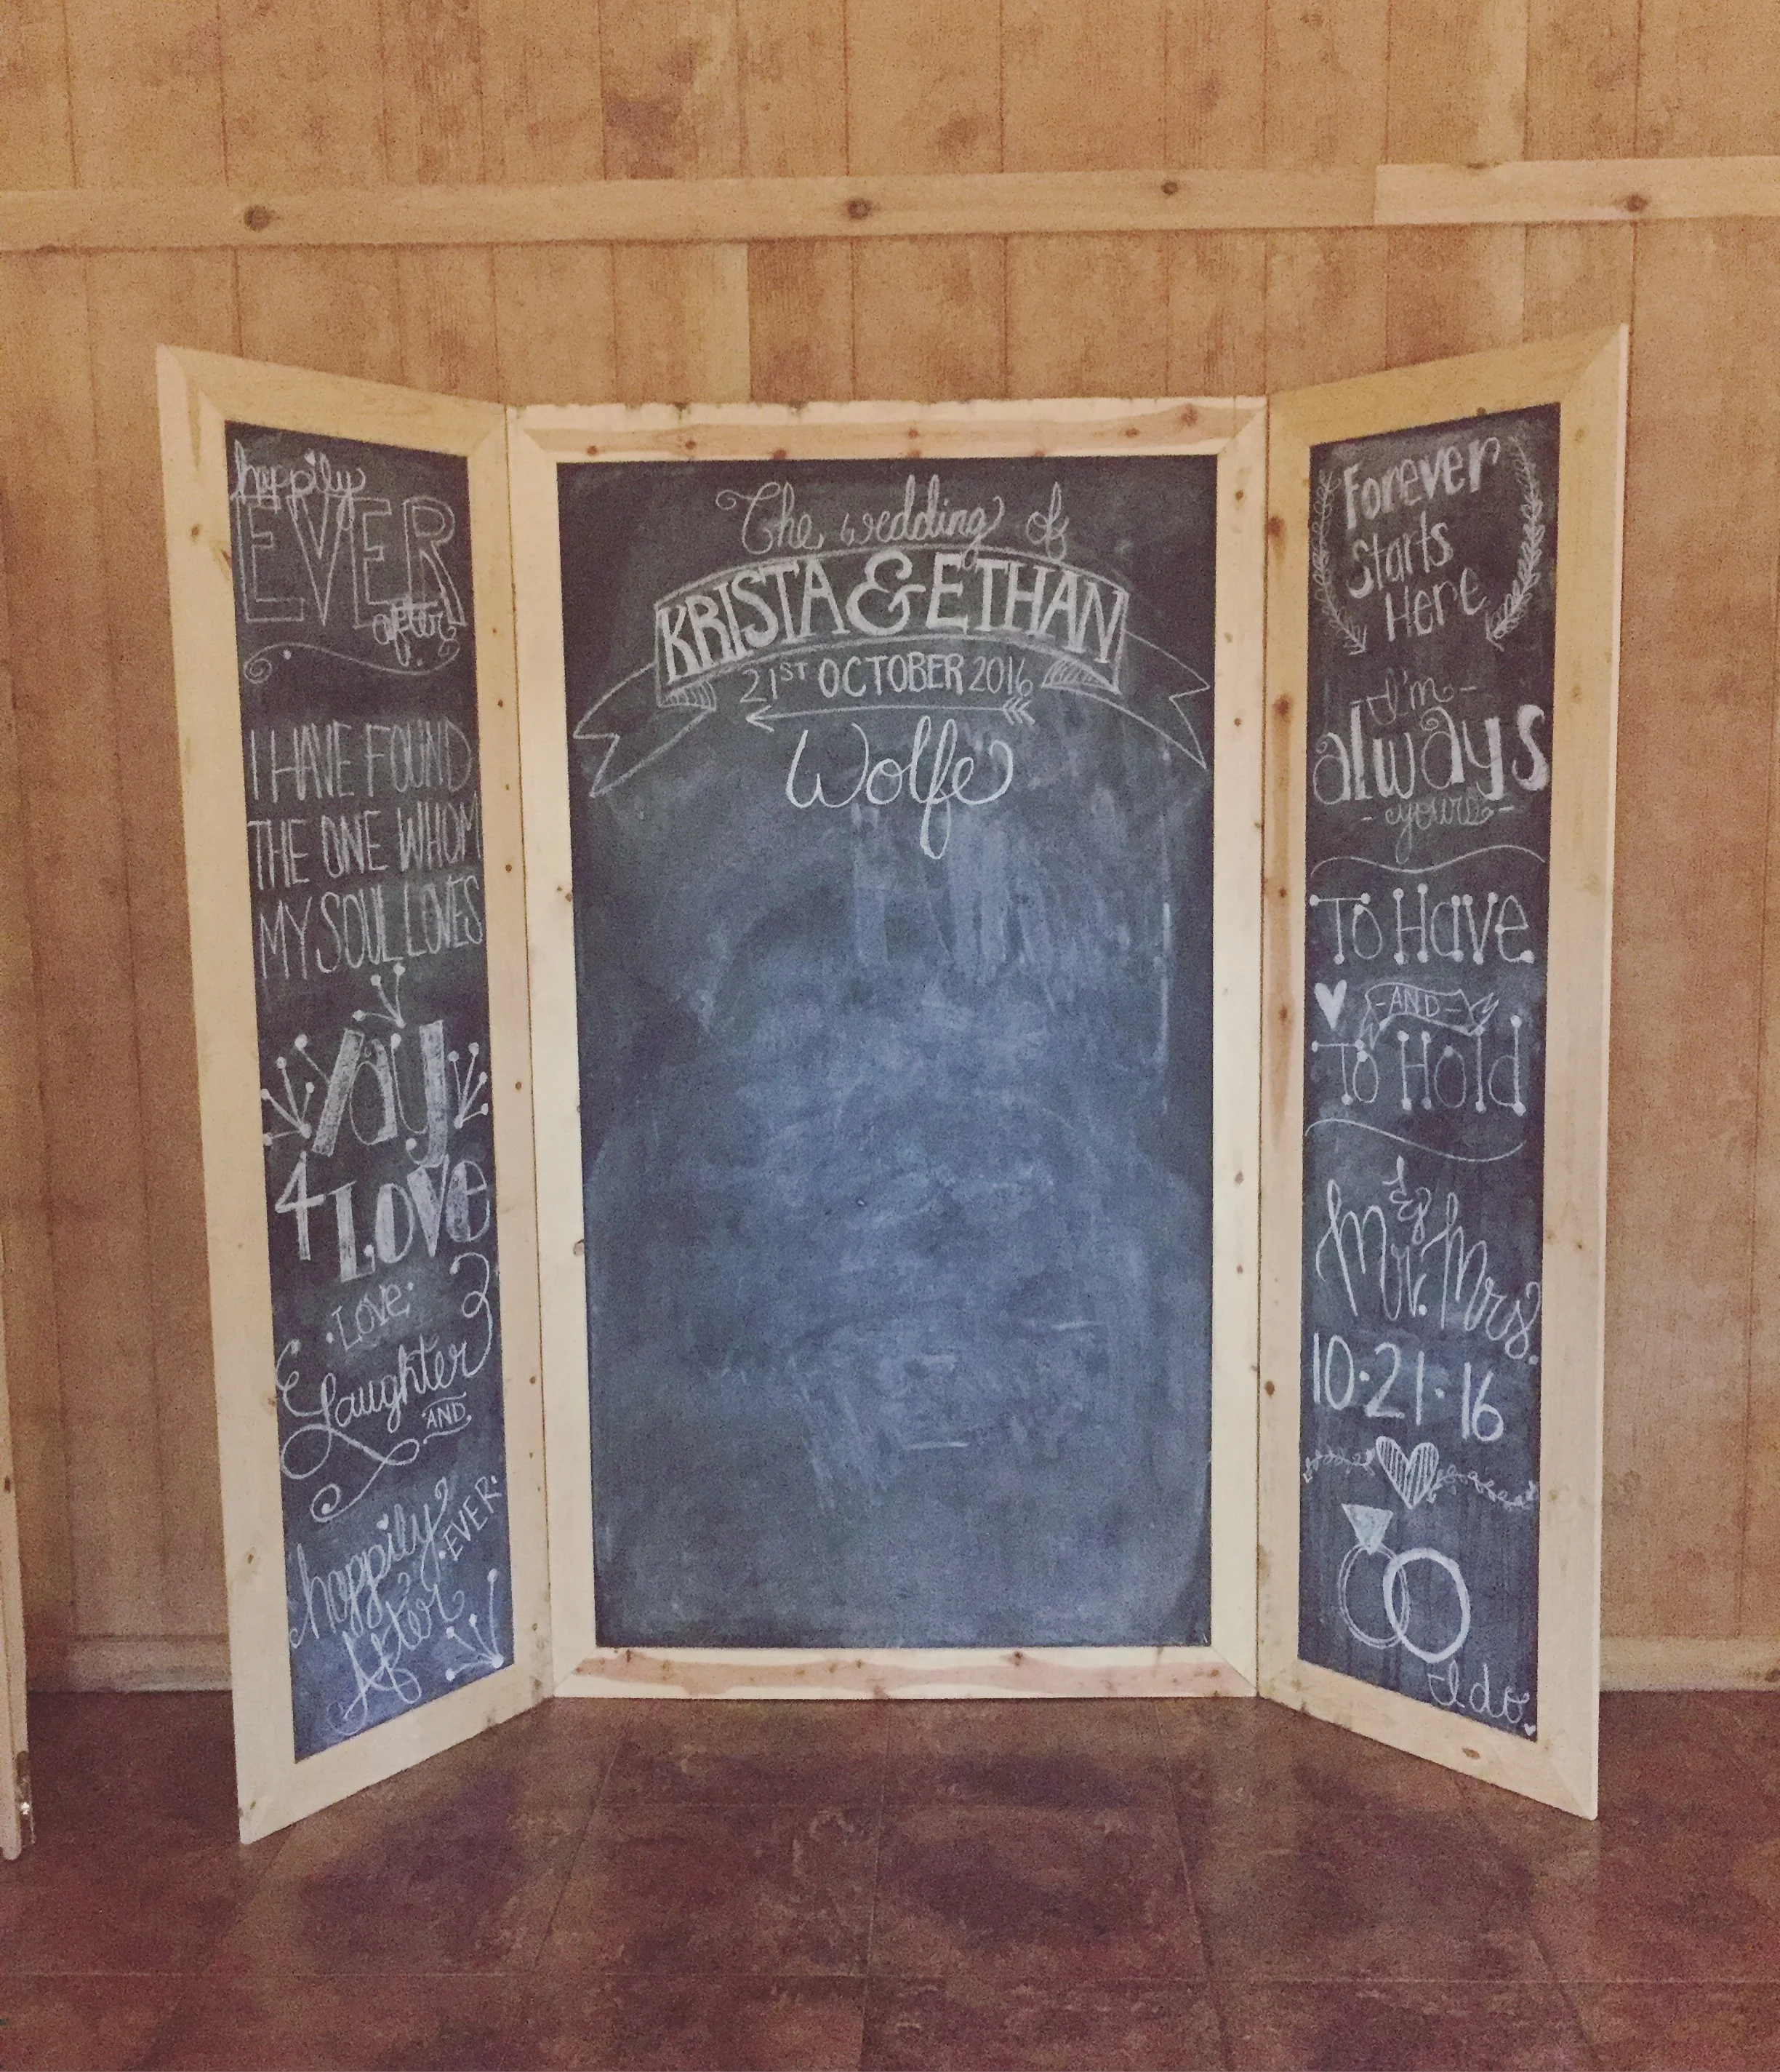 happily
EVER
after
I HAVE FOUND
THE ONE WHOM
MY SOUL LOVES
yay
4 LOVE
·LOVE·
Laughter
AND
happily
·EVER·
After
The wedding of
KRISTA & ETHAN
21ST OCTOBER 2016
Wolfe
Forever
Starts
Here
I'm -
always
- yours -
To Have
-AND-
To Hold
&
Mr. Mrs.
10·21·16
I do.